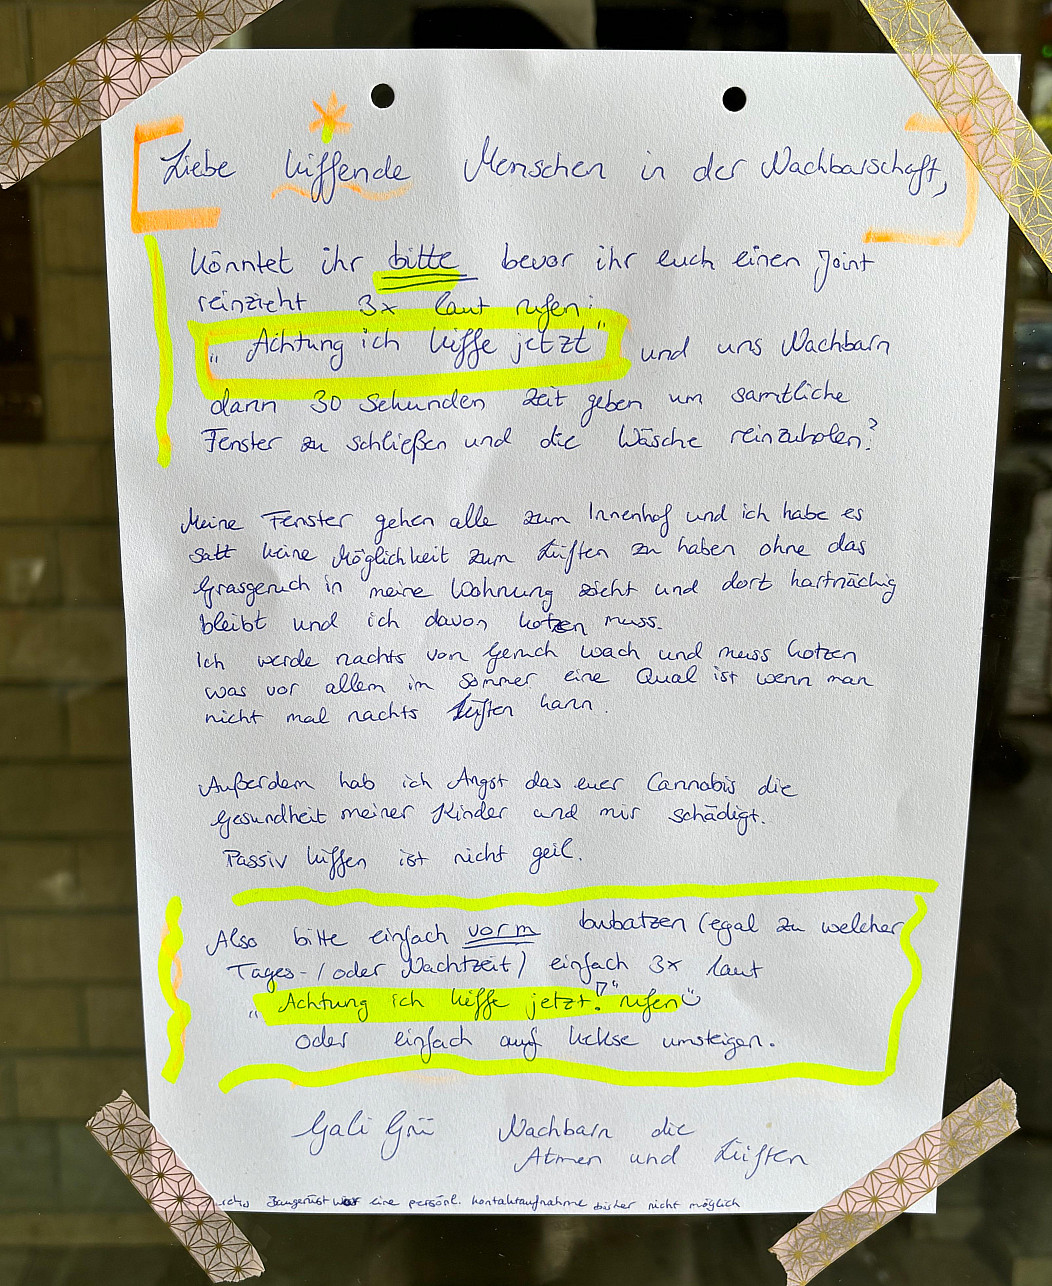 Liebe kiffende Menschen in der Nachbarschaft,
könntet ihr bitte bevor ihr euch einen Joint
reinzieht 3x laut rufen:
„Achtung ich kiffe jetzt" und uns Nachbarn
dann 30 Sekunden Zeit geben um samtliche
Fenster zu schließen und die Wäsche reinzuholen?
Meine Fenster gehen alle zum Innenhof und ich habe es
satt keine Möglichkeit zum Lüften zu haben ohne das
Grasgeruch in meine Wohnung zieht und dort hartnäckig
bleibt und ich davon kotzen muss.
Ich werde nachts vom Geruch wach und muss kotzen
was vor allem im Sommer eine Qual ist wenn man
nicht mal nachts lüften kann.
Außerdem hab ich Angst das euer Cannabis die
Gesundheit meiner Kinder und mir schädigt.
Passiv kiffen ist nicht geil.
Also bitte einfach vorm bubatzen (egal zu welcher
Tages-/oder Nachtzeit) einfach 3x laut
„Achtung ich kiffe jetzt!" rufen☺
oder einfach auf Kekse umsteigen.
Gali Grü Nachbarn die
Atmen und Lüften
Baugerüst war eine persönl. Kontaktaufnahme bisher nicht möglich